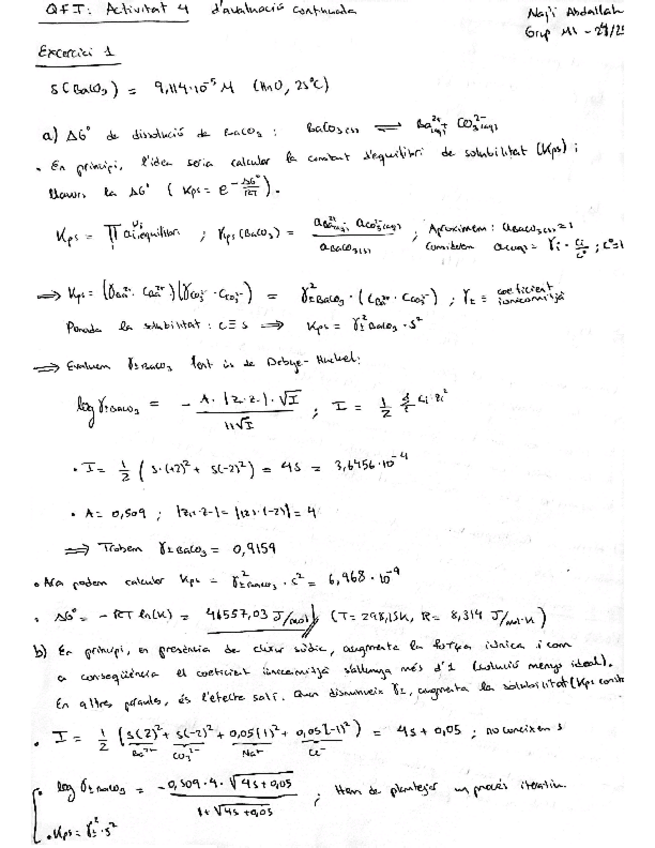 QFI: Activitat 4 d'avaluació continuada
Naji Abdallah
Grup M1 - 24/25
Excercici 1
S(BaCO3) = 9,114·10^-5 M (H2O, 25°C)
a) ΔG° de dissolució de BaCO3 : BaCO3(s) ⇌ Ba^2+(aq) + CO3^2-(aq)
• En principi, l'idea seria calcular la constant d'equilibri de solubilitat (Kps) i
llavors la ΔG° ( Kps = e^(-ΔG°/RT) ).
Kps = ∏ ai^νi, equilibri ; Kps(BaCO3) = (aBa^2+(aq) · aCO3^2-(aq)) / aBaCO3(s) ; Aproximem: aBaCO3(s) = 1
Considerem ai(aq) = γi · ci/c° ; c° = 1
⟹ Kps = (γBa^2+ · CBa^2+)(γCO3^2- · CCO3^2-) = γ±^2 BaCO3 · (CBa^2+ · CCO3^2-) ; γ± ≡ coeficient ionicomitjà
Ponada la solubilitat : c ≡ s ⟹ Kps = γ±^2 BaCO3 · s^2
⟹ Evaluem γ± BaCO3 fent ús de Debye-Huckel:
log γ± BaCO3 = - (A · |z+ z-| · √I) / (1+√I) ; I = 1/2 Σi ci zi^2
• I = 1/2 ( s·(+2)^2 + s(-2)^2 ) = 4s = 3,6456·10^-4
• A = 0,509 ; |z+·z-| = |(2)·(-2)| = 4
⟹ Trobem γ± BaCO3 = 0,9159
• Ara podem calcular Kps = γ±^2 BaCO3 · s^2 = 6,968·10^-9
• ΔG° = -RT ln(K) = 46557,03 J/mol (T = 298,15K, R = 8,314 J/mol·K)
b) En principi, en presència de clorur sòdic, augmenta la força iònica i com
a conseqüència el coeficient ionicomitjà s'allunya més d'1 (solució menys ideal).
En altres paraules, és l'efecte salí. Quan disminueix γ±, augmenta la solubilitat (Kps const
• I = 1/2 ( s(2)^2 + s(-2)^2 + 0,05(1)^2 + 0,05(-1)^2 ) = 4s + 0,05 ; no coneixem s
Ba^2+ CO3^2- Na+ Cl-
• log γ± BaCO3 = (-0,509·4·√(4s+0,05)) / (1+√(4s+0,05)) ; Hem de plantejar un procés iteratiu.
• Kps = γ±^2 · s^2